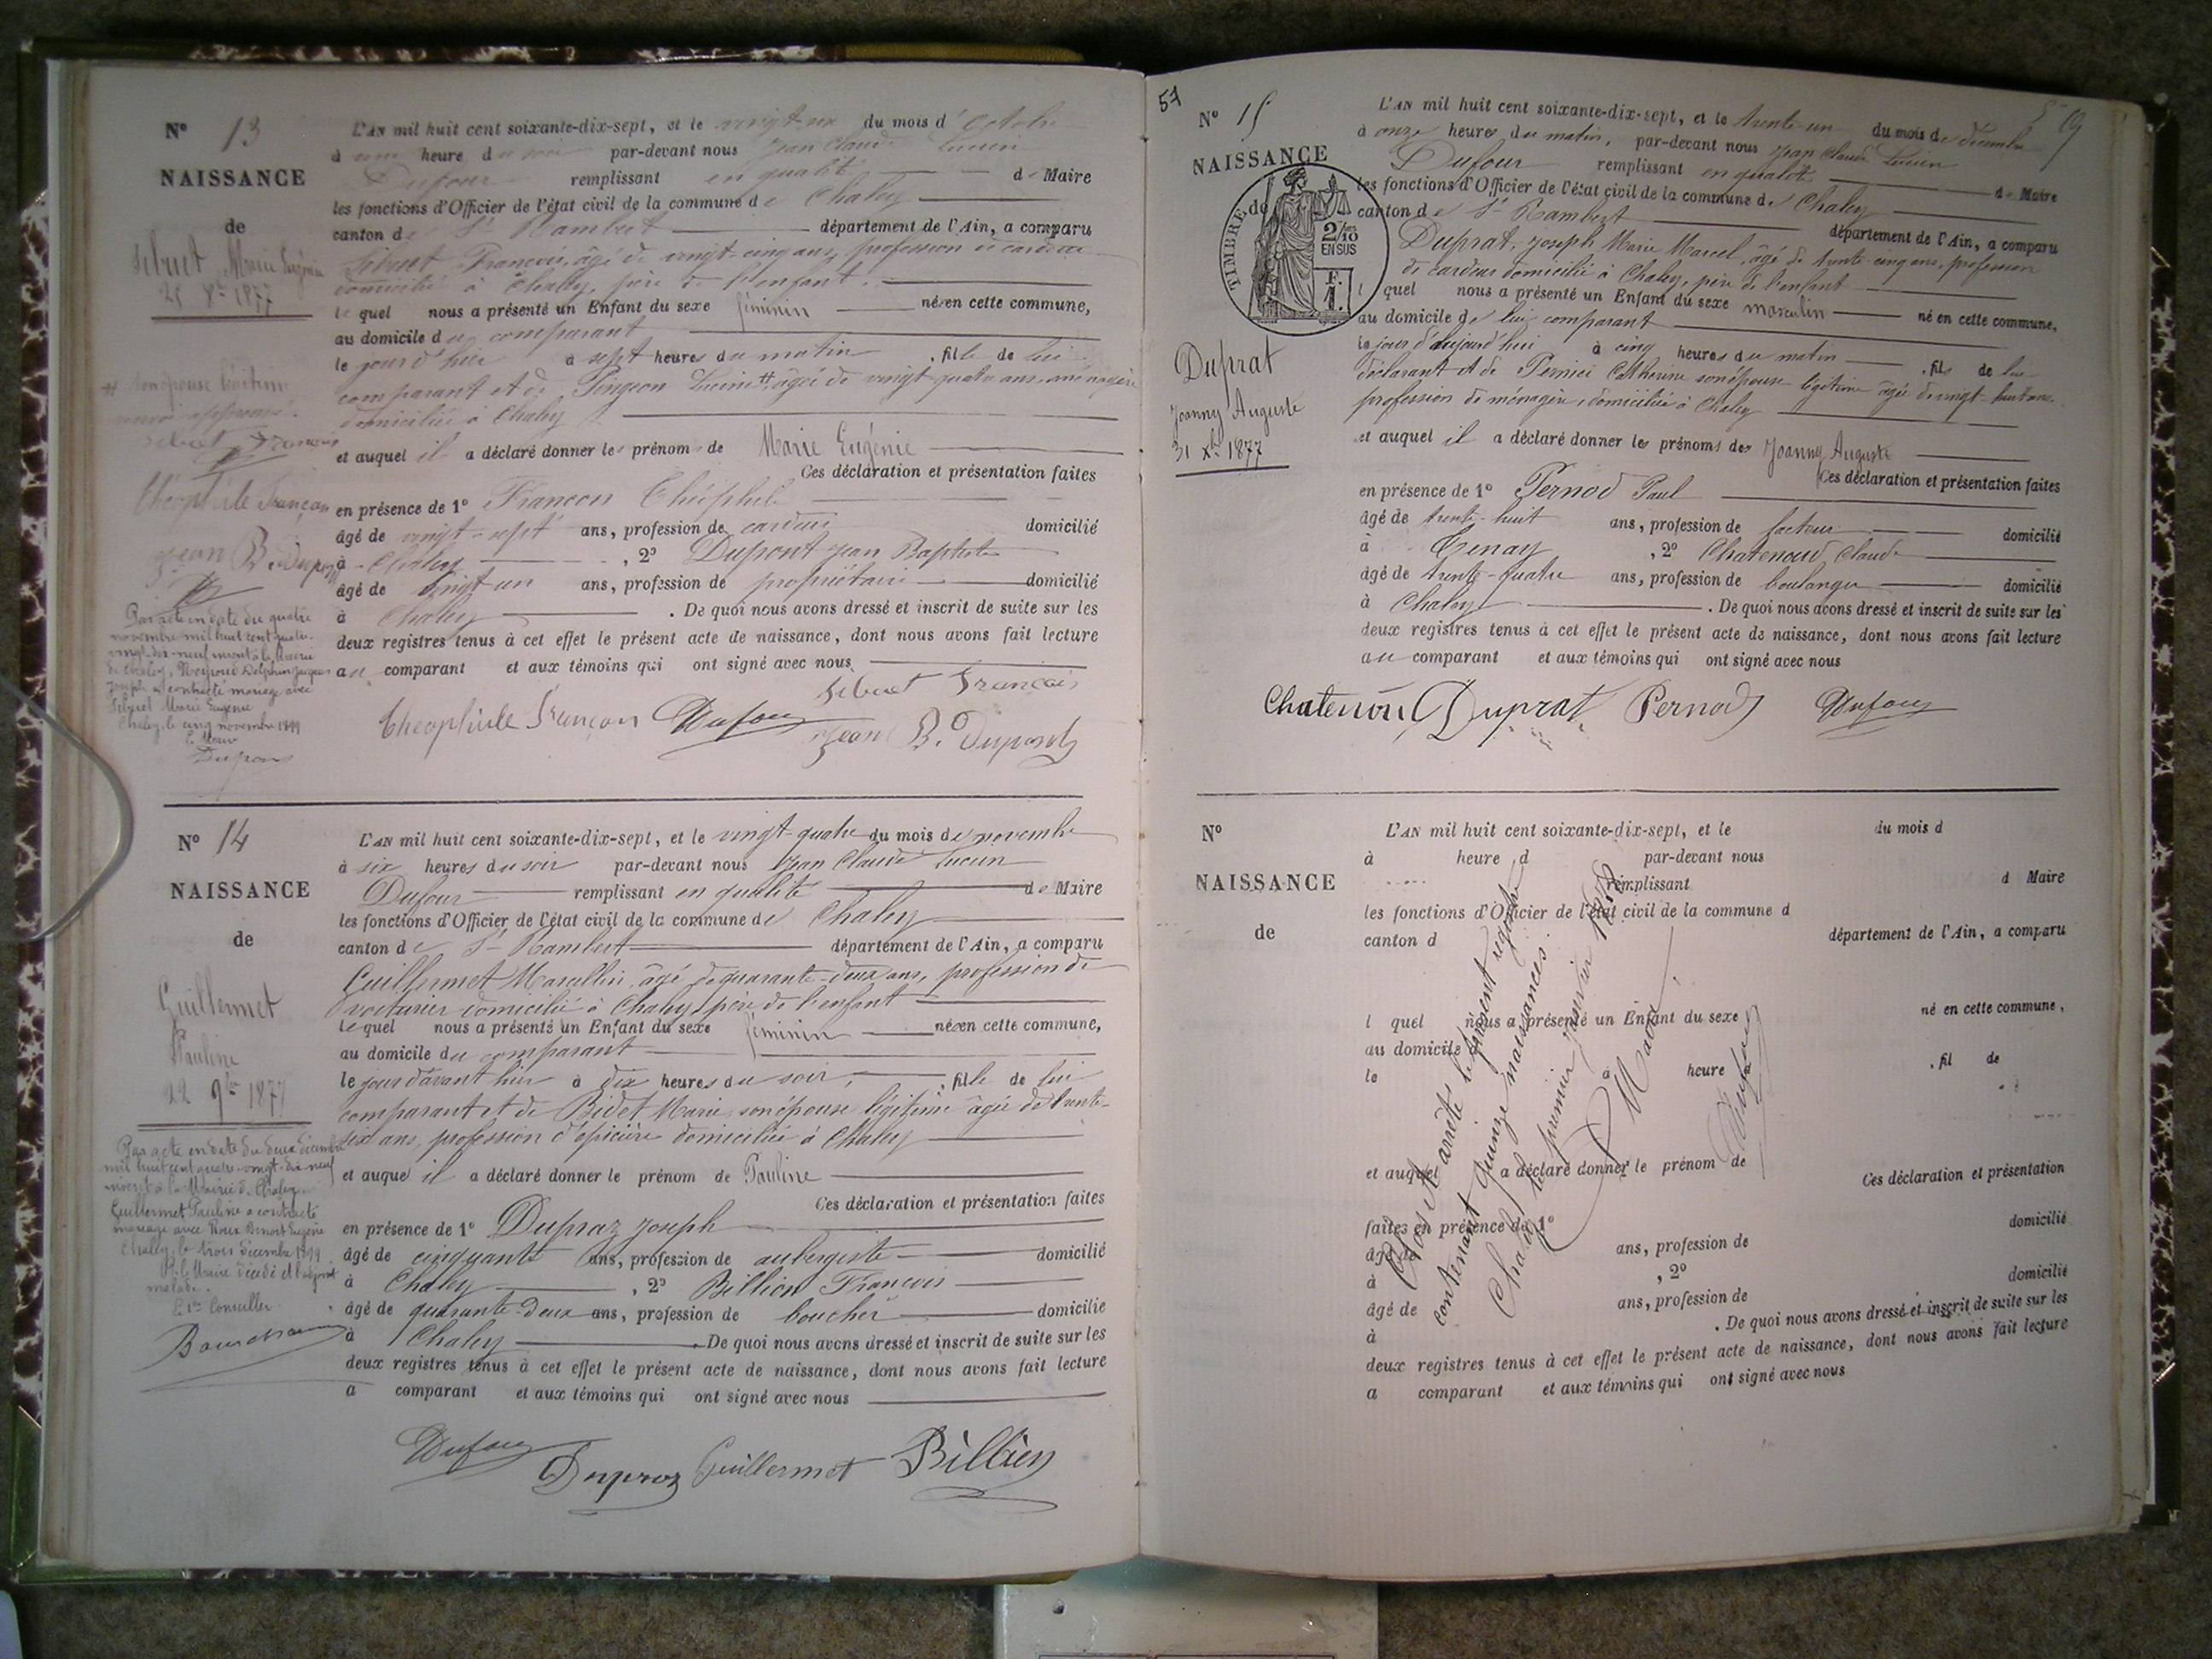 N° 13
NAISSANCE
de
Sibuet Marie Eugénie
25 8bre 1877
# son épouse légitime
renvoi approuvé.
Sibuet François
Théophile Françon
Jean B. Dupont
Par acte en date du quatre
novembre mil huit cent quatre-
vingt-dix-neuf inscrit à la Mairie
de Chaley, Delphin Jacques
Joseph a contracté mariage avec
Sibuet Marie Eugénie
Chaley, le cinq novembre 1899
Le Maire
Dupont
L'AN mil huit cent soixante-dix-sept, et le vingt-six du mois d'Octobre
à une heure du soir par-devant nous Jean Claude Lucien
Dufour remplissant en qualité de Maire
les fonctions d'Officier de l'état civil de la commune de Chaley
canton de St Rambert département de l'Ain, a comparu
Sibuet François, âgé de vingt-cinq ans, profession de cardeur
domicilié à Chaley, père de l'enfant,
lequel nous a présenté un Enfant du sexe féminin née en cette commune,
au domicile du comparant
le jour d'hier à sept heures du matin, fille de lui
comparant et de Pingeon Lucine # âgée de vingt-quatre ans, ménagère
domiciliée à Chaley
et auquel il a déclaré donner les prénoms de Marie Eugénie
Ces déclaration et présentation faites
en présence de 1° Françon Théophile
âgé de vingt-sept ans, profession de cardeur domicilié
à Chaley, 2° Dupont Jean Baptiste
âgé de vingt un ans, profession de propriétaire domicilié
à Chaley. De quoi nous avons dressé et inscrit de suite sur les
deux registres tenus à cet effet le présent acte de naissance, dont nous avons fait lecture
au comparant et aux témoins qui ont signé avec nous
Sibuet François
Théophile Françon Dufour Jean B. Dupont
N° 14
NAISSANCE
de
Guillermet
Pauline
22 9bre 1877
Par acte en date du deux décembre
mil huit cent quatre-vingt-dix-neuf
inscrit à la Mairie de Chaley
Guillermet Pauline a contracté
mariage avec Roux Benoit Eugène
Chaley, le trois décembre 1899
P. le Maire décédé et l'adjoint
malade.
Le 1er Conseiller
L'AN mil huit cent soixante-dix-sept, et le vingt-quatre du mois de novembre
à six heures du soir par-devant nous Jean Claude Lucien
Dufour remplissant en qualité de Maire
les fonctions d'Officier de l'état civil de la commune de Chaley
canton de St Rambert département de l'Ain, a comparu
Guillermet Marcellin, âgé de quarante-deux ans, profession de
voiturier domicilié à Chaley, père de l'enfant
lequel nous a présenté un Enfant du sexe féminin née en cette commune,
au domicile du comparant
le jour d'avant hier à dix heures du soir, fille de lui
comparant et de Bidet Marie, son épouse légitime âgée de trente-
six ans, profession d'épicière domiciliée à Chaley
et auquel il a déclaré donner le prénom de Pauline
Ces déclaration et présentation faites
en présence de 1° Dupraz Joseph
âgé de cinquante ans, profession de aubergiste domicilié
à Chaley, 2° Billion François
âgé de quarante-deux ans, profession de boucher domicilié
à Chaley. De quoi nous avons dressé et inscrit de suite sur les
deux registres tenus à cet effet le présent acte de naissance, dont nous avons fait lecture
a comparant et aux témoins qui ont signé avec nous
Dufour Dupraz Guillermet Billien
57
N° 15
NAISSANCE
de
TIMBRE
2/10
EN SUS
F.
1.
Duprat
Joanny Auguste
31 Xbre 1877
L'AN mil huit cent soixante-dix-sept, et le trente-un du mois de décembre
à onze heures du matin, par-devant nous Jean Claude Lucien
Dufour remplissant en qualité de Maire
les fonctions d'Officier de l'état civil de la commune de Chaley
canton de St Rambert département de l'Ain, a comparu
Duprat, Joseph Marie Marcel, âgé de trente-cinq ans, profession
de cardeur domicilié à Chaley, père de l'enfant
lquel nous a présenté un Enfant du sexe masculin né en cette commune,
au domicile de lui comparant
le jour d'aujourd'hui à cinq heures du matin, fils de lui
déclarant et de Pernici Catherine son épouse légitime âgée de vingt-huit ans
profession de ménagère, domiciliée à Chaley
et auquel il a déclaré donner les prénoms de Joanny Auguste
Ces déclaration et présentation faites
en présence de 1° Pernod Paul
âgé de trente-huit ans, profession de facteur domicilié
à Tenay, 2° Chatenoud Claude
âgé de trente-quatre ans, profession de boulanger domicilié
à Chaley. De quoi nous avons dressé et inscrit de suite sur les
deux registres tenus à cet effet le présent acte de naissance, dont nous avons fait lecture
au comparant et aux témoins qui ont signé avec nous
Chatenoud Duprat Pernod Dufour
N°
NAISSANCE
de
L'AN mil huit cent soixante-dix-sept, et le du mois d
à heure d par-devant nous
remplissant d Maire
les fonctions d'Officier de l'état civil de la commune d
canton d département de l'Ain, a comparu
l quel nous a présenté un Enfant du sexe né en cette commune,
au domicile d
le à heure , fil de
et auquel a déclaré donner le prénom de
Ces déclaration et présentation
faites en présence de 1° domicilié
âgé de ans, profession de
à , 2° domicilié
âgé de ans, profession de
à . De quoi nous avons dressé et inscrit de suite sur les
deux registres tenus à cet effet le présent acte de naissance, dont nous avons fait lecture
a comparant et aux témoins qui ont signé avec nous
Clos et arrêté le présent registre
contenant quinze naissances.
Chaley le premier janvier 1878
Le Maire
Dufour